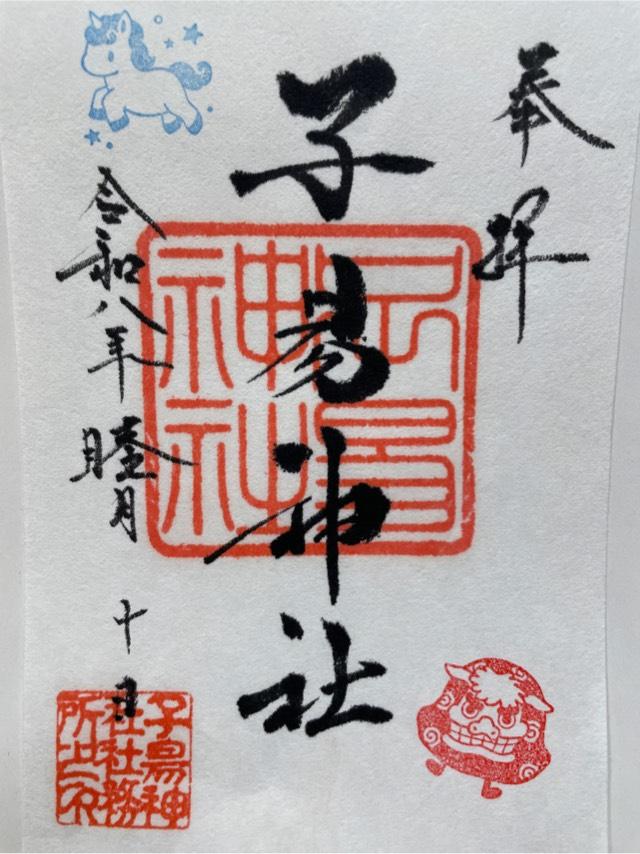 奉拝
子易神社
令和八年睦月
十日
子易
神社
子易神
社社務
所之印